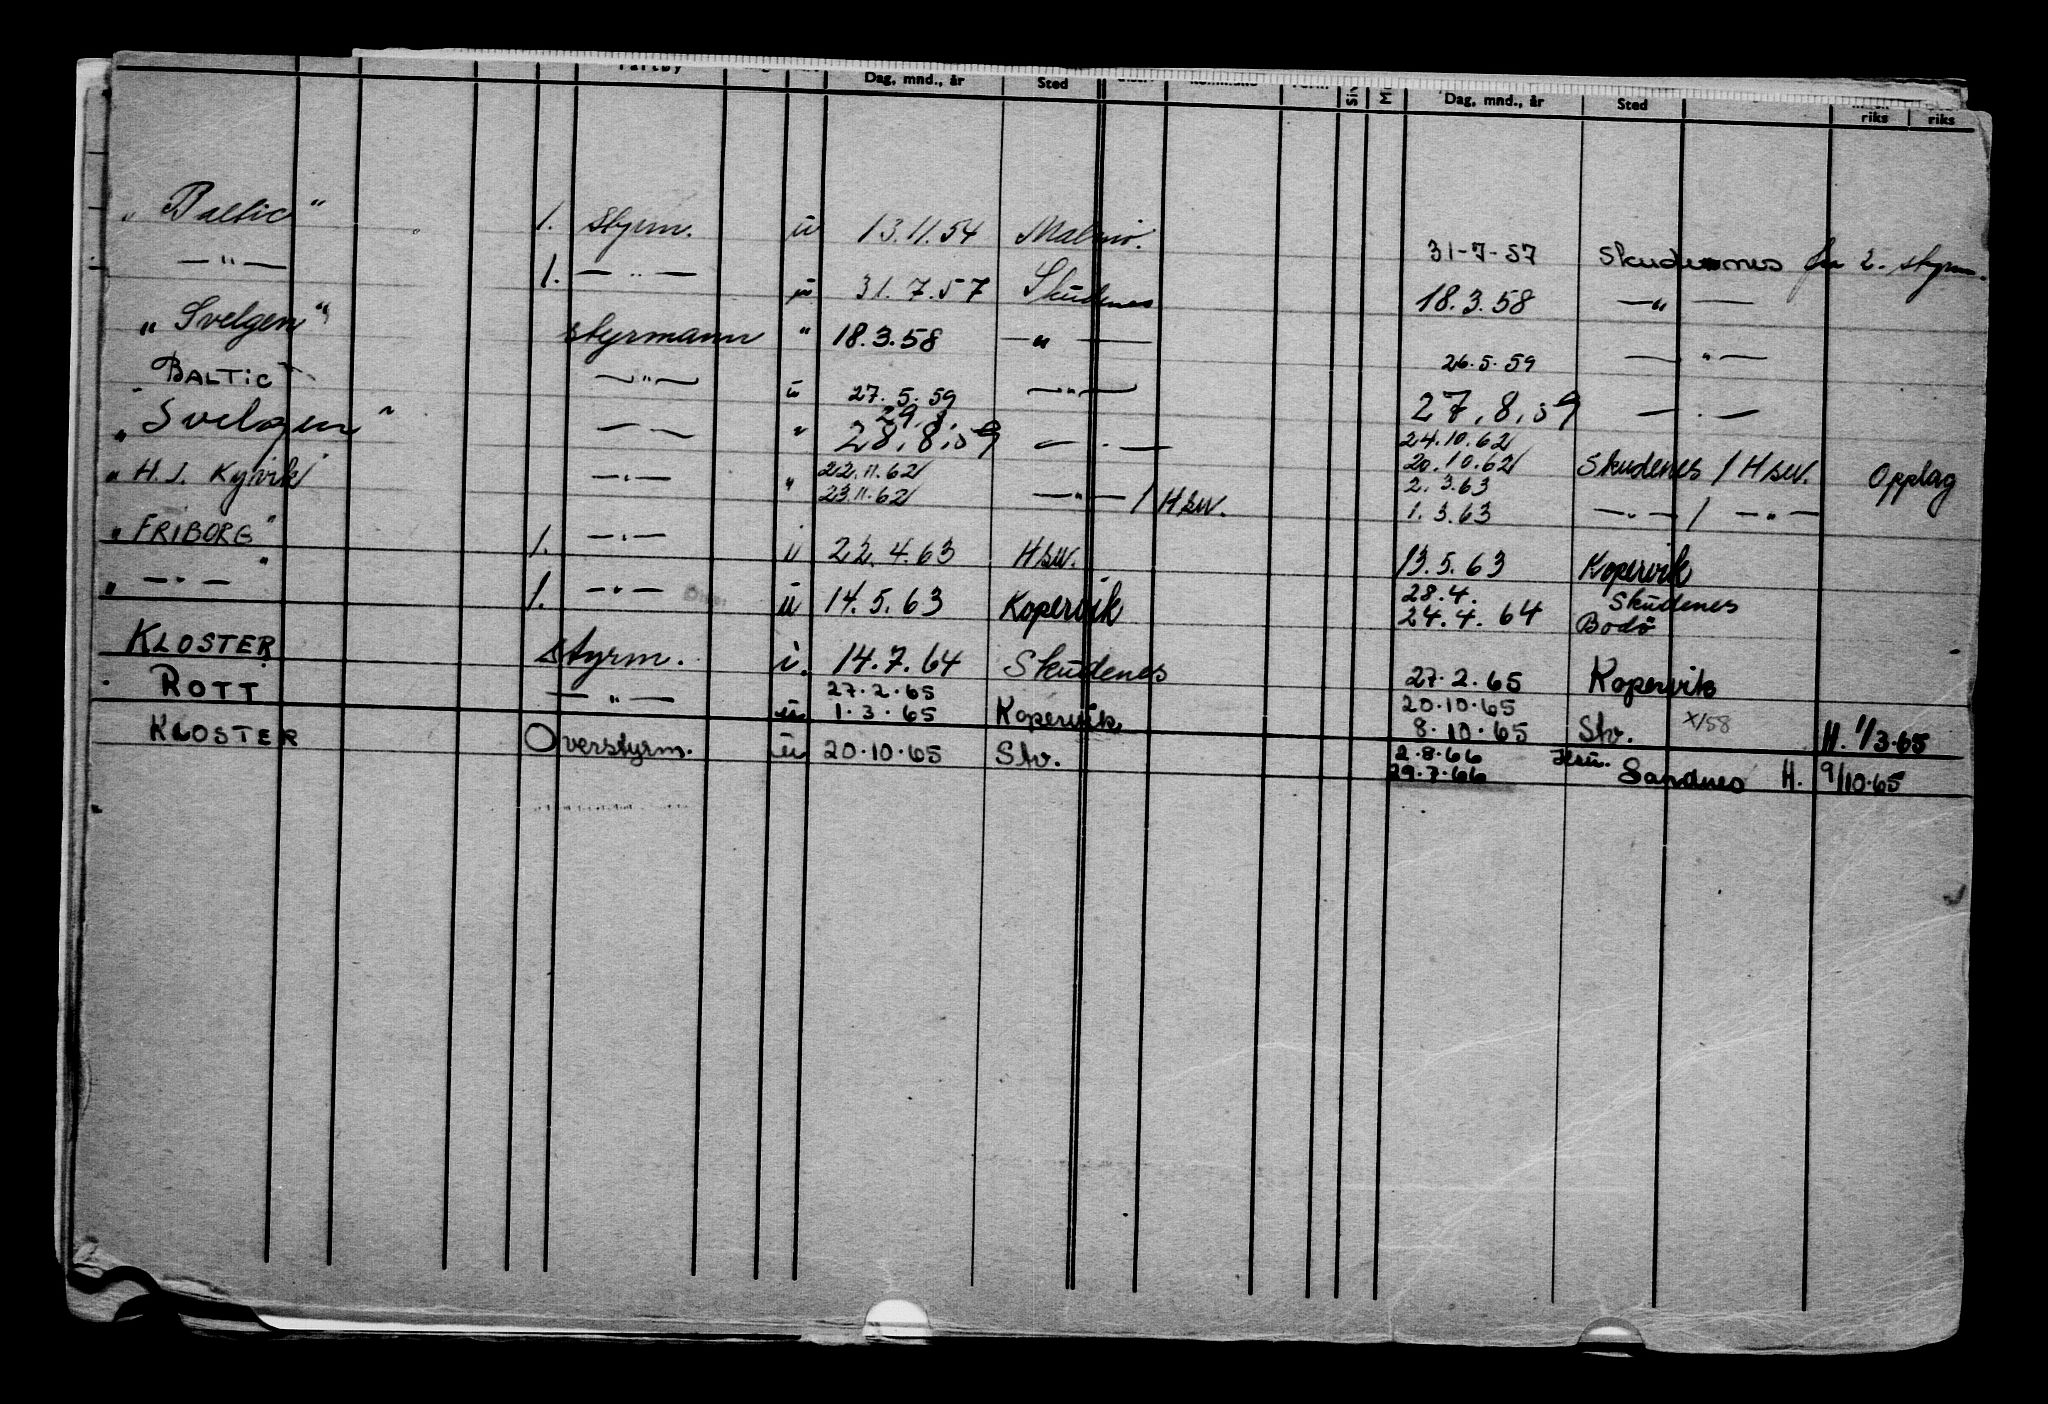 Dag, mnd., år Sted Dag, mnd., år Sted riks riks
„Baltic" 1. styrm. u 13.11.54 Malmö. 31-7-57 Skudesnes fra 2. styrm.
—"— 1. —"— u 31.7.57 Skudenes 18.3.58 —"—
„Svelgen" styrmann " 18.3.58 —"— 26.5.59 —"—
BALTIC —"— u 27.5.59 —"— 27.8.59 —"—
29.8.
„Svelgen" —"— " 28.8.59 —"— 24.10.62
20.10.62 Skudenes / Hsw. Opplag
„H. J. Kyvik" —"— " 22.11.62 2.3.63
23.11.62 —"— / Hsw. 1.3.63 —"— / —"—
„FRIBORG" 1. —"— u 22.4.63 Hsw. 13.5.63 Kopervik
„—"—" 1. —"— u 14.5.63 Kopervik 28.4. Skudenes
24.4.64 Bodö
KLOSTER styrm. i. 14.7.64 Skudenes 27.2.65 Kopervik
ROTT —"— 27.2.65 20.10.65
u 1.3.65 Kopervik 8.10.65 Stv. X/58 H. 1/3.65
KLOSTER Overstyrm. u 20.10.65 Stv. 2.8.66
29.7.66 Sandnes H. 9/10.65